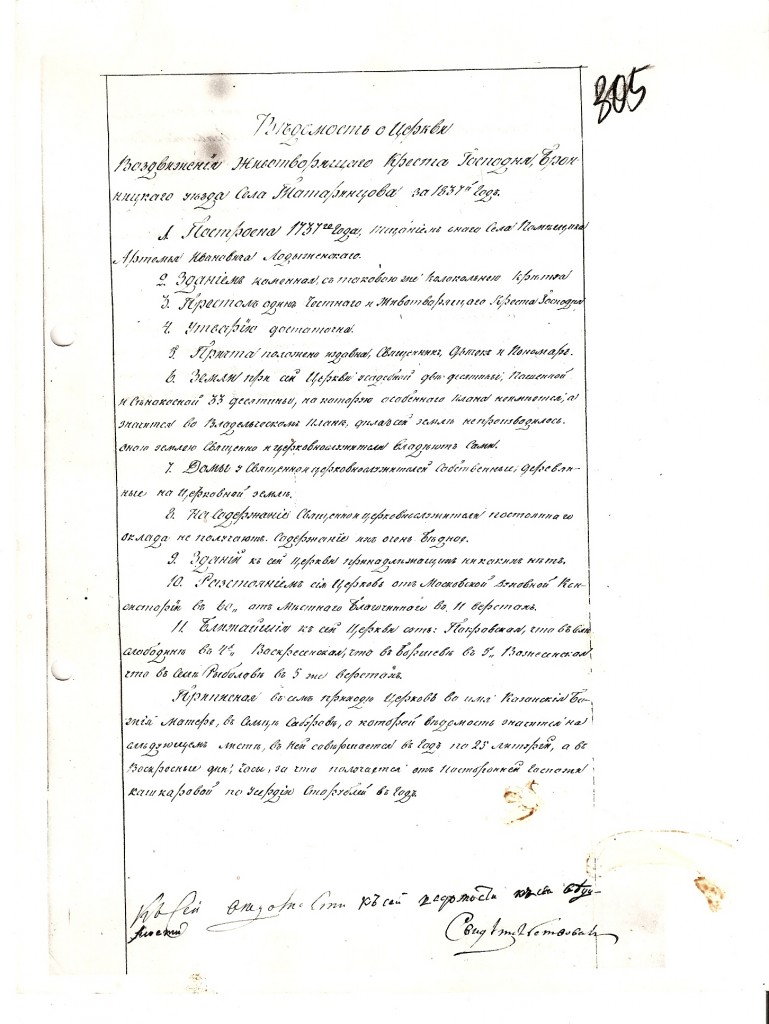 305
Вѣдомость о Церкви
Воздвиженія Животворящаго Креста Господня, Брон-
ницкаго уѣзда Села Татаринцова за 1837й Годъ.
1. Построена 1737го Года, тщаніемъ онаго Села Помѣщика
Артемья Ивановича Лодыженскаго.
2. Зданіемъ каменная, съ таковою же Колокольнею Крѣпка
3. Престолъ одинъ Честнаго и Животворящаго Креста Господня
4. Утварію достаточна.
5. Причта положено издавна, Священникъ, Дьячекъ и Пономарь.
6. Земли при сей Церкви усадебной двѣ десятины, Пашенной
и Сѣнокосной 33 десятины, на которую особеннаго плана неимѣется, а
значится во Владельческомъ Планѣ, сей землѣ непроизводилось.
оною землею Священно и церковнослужители Владѣютъ Сами.
7. Домы у Священно и церковнослужителей Собственные, деревян-
ные на Церковной землѣ.
8. На Содержаніе Священно и церковнослужители постояннаго
оклада не получаютъ. Содержаніе ихъ очень бѣдное.
9. Зданій къ сей Церкви принадлежащихъ никакихъ нѣтъ.
10. Разстояніемъ сія Церковь отъ Московской Духовной Кон-
систоріи въ 60„ отъ Мѣстнаго Благочиннаго въ 11 верстахъ.
11. Ближайшія къ сей Церкви суть: Покровская, что въ
слободинѣ въ 4„ Воскресенская, что въ Боршевѣ въ 5„ Вознесенская,
что въ Селѣ Рыболовѣ въ 5 же верстахъ.
Приписная въ семъ приходѣ Церковь во имя Казанскія Бо-
жія Матере, въ Сельцѣ Сабуровѣ, о которой вѣдомость значится на
слѣдующемъ листѣ, въ ней совершается въ Годъ по 25 литургій, а въ
Воскресные дни, Часы, за что получается отъ посторонней Госпожи
Кашкаровой по Усердію Сто рублей въ Годъ.
Къ Сей къ сей